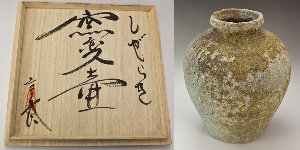 しがらき
窯変壷